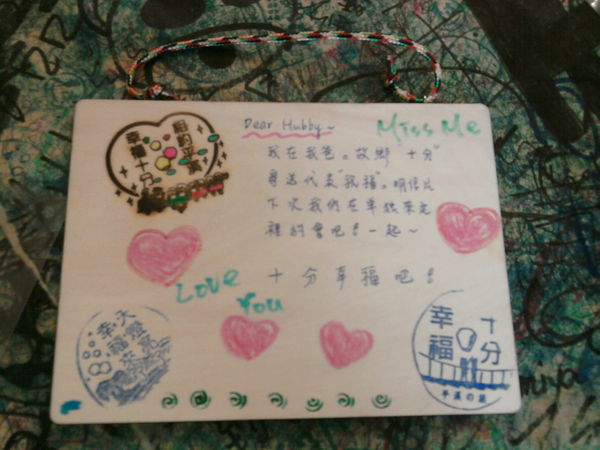 Dear Hubby~
Miss Me
相約平溪
幸福十分
我在我爸。故鄉"十分"
寄送代表"祝福"。明信片
下次我們在單獨來這
裡約會吧!一起~
十分幸福吧!
Love
You
幸福
十分